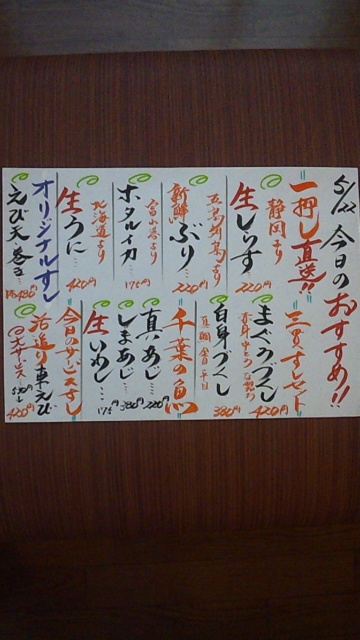 5/22 今日のおすすめ!!
一押し直送!!
静岡より
生しらす 220円
五島列島より
新鮮ぶり… 220円
富山港より
ホタルイカ… 170円
北海道より
生うに… 420円
オリジナルすし
えび天巻き…
三貫すしセット
まぐろづくし 420円
赤身 中とろ
白身づくし 380円
真鯛
千葉の魚
真あじ… 220円
しまあじ… 380円
生いわし…
今日のサービスすし
活造り車えび
大サービス 420円